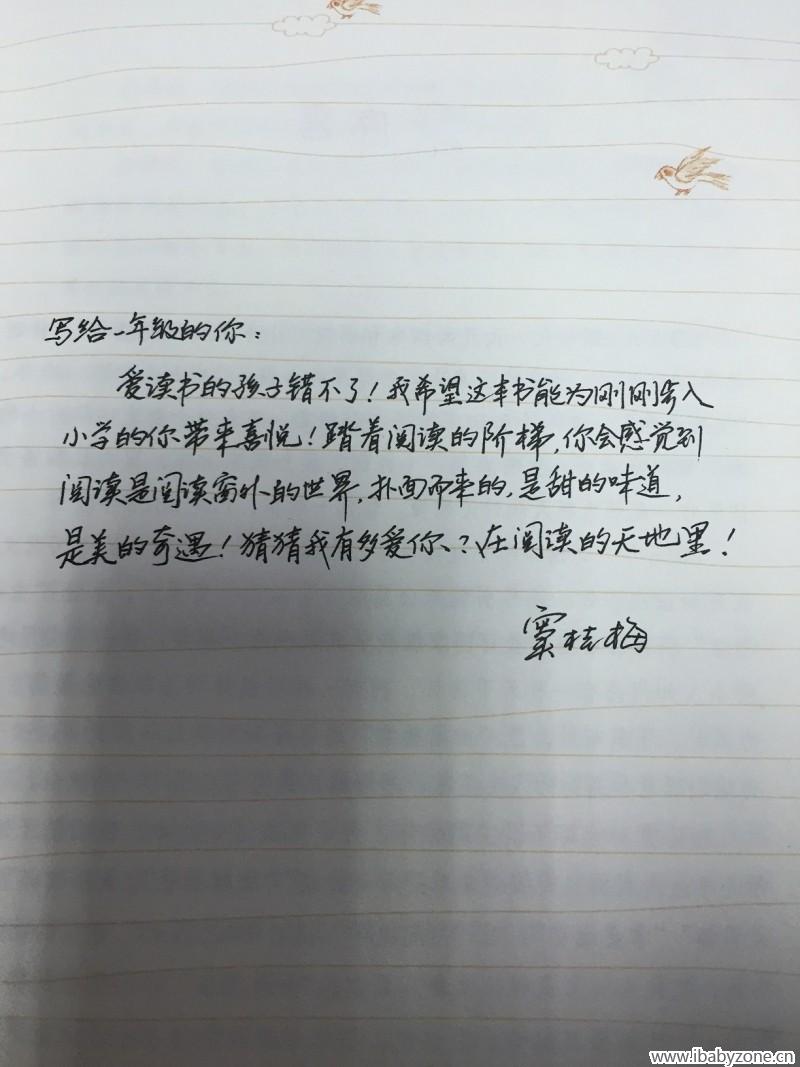 写给一年级的你：
爱读书的孩子错不了！我希望这本书能为刚刚步入
小学的你带来喜悦！踏着阅读的阶梯，你会感觉到
阅读是阅读窗外的世界，扑面而来的，是甜的味道，
是美的奇遇！猜猜我有多爱你、？在阅读的天地里！
窦桂梅
www.ibabyzone.cn